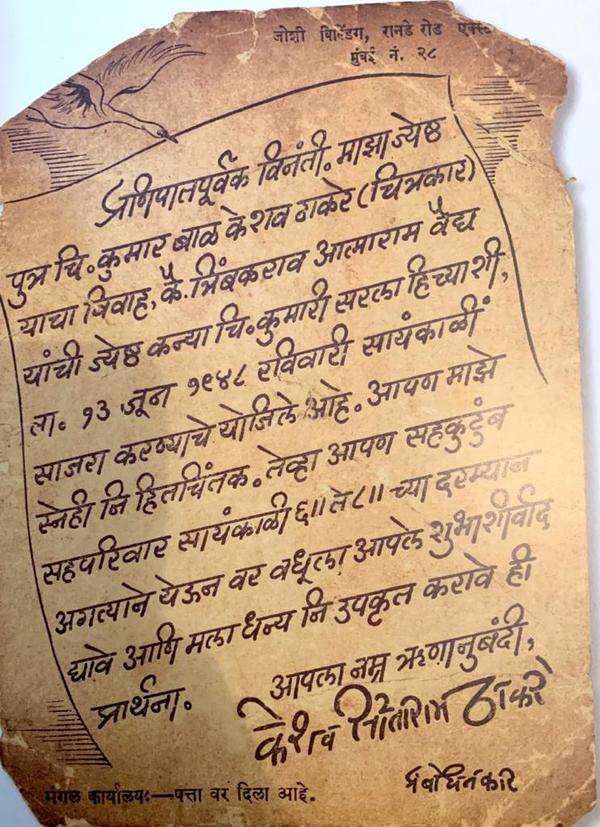 जोशी बिल्डिंग, रानडे रोड एक्स्
मुंबई नं. २८
प्रणिपातपूर्वक विनंती. माझा ज्येष्ठ
पुत्र चि. कुमार बाळ केशव ठाकरे (चित्रकार)
याचा विवाह, कै. त्रिंबकराव आत्माराम वैद्य
यांची ज्येष्ठ कन्या चि. कुमारी सरला हिच्याशी,
ता. १३ जून १९४८ रविवारी सायंकाळीं
साजरा करण्याचे योजिले आहे. आपण माझे
स्नेही नि हितचिंतक. तेव्हा आपण सहकुटुंब
सहपरिवार सायंकाळी ६॥ ते ८॥ च्या दरम्यान
अगत्याने येऊन वर वधूला आपले शुभाशीर्वाद
द्यावे आणि मला धन्य नि उपकृत करावे ही
प्रार्थना.
आपला नम्र ऋणानुबंदी,
केशव सीताराम ठाकरे
प्रबोधनकार
मंगल कार्यालयः—पत्ता वर दिला आहे.